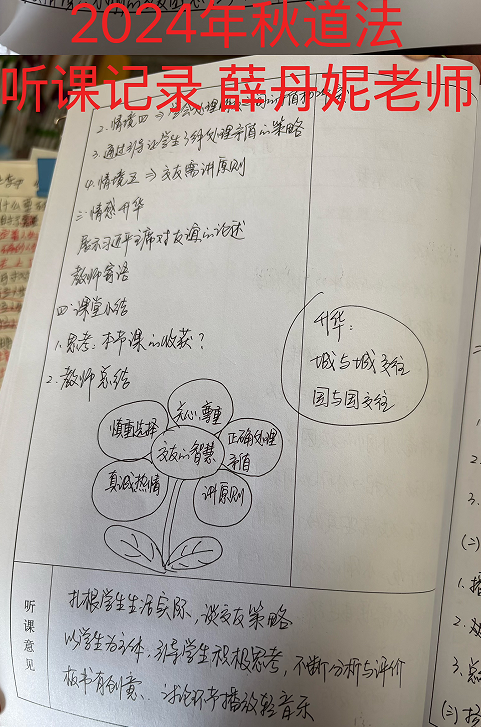 2024年秋道法
听课记录 薛丹妮老师
2. 情境四 ⇒ 学会处理
3. 通过引导让学生了解处理矛盾的策略
4. 情境五 ⇒ 交友需讲原则
三. 情感升华
展示习近平主席对友谊的论述
教师寄语
四. 课堂小结
1. 思考: 本节课的收获?
2. 教师总结
关心、尊重
慎重选择
正确处理
矛盾
交友的智慧
真诚热情
讲原则
升华:
城与城交往
国与国交往
听课意见
扎根学生生活实际、谈交友策略
以学生为主体, 引导学生积极思考, 不断分析与评价
板书有创意、讨论环节播放轻音乐
2.
3.
(二)
1.
2.
3.
(三)